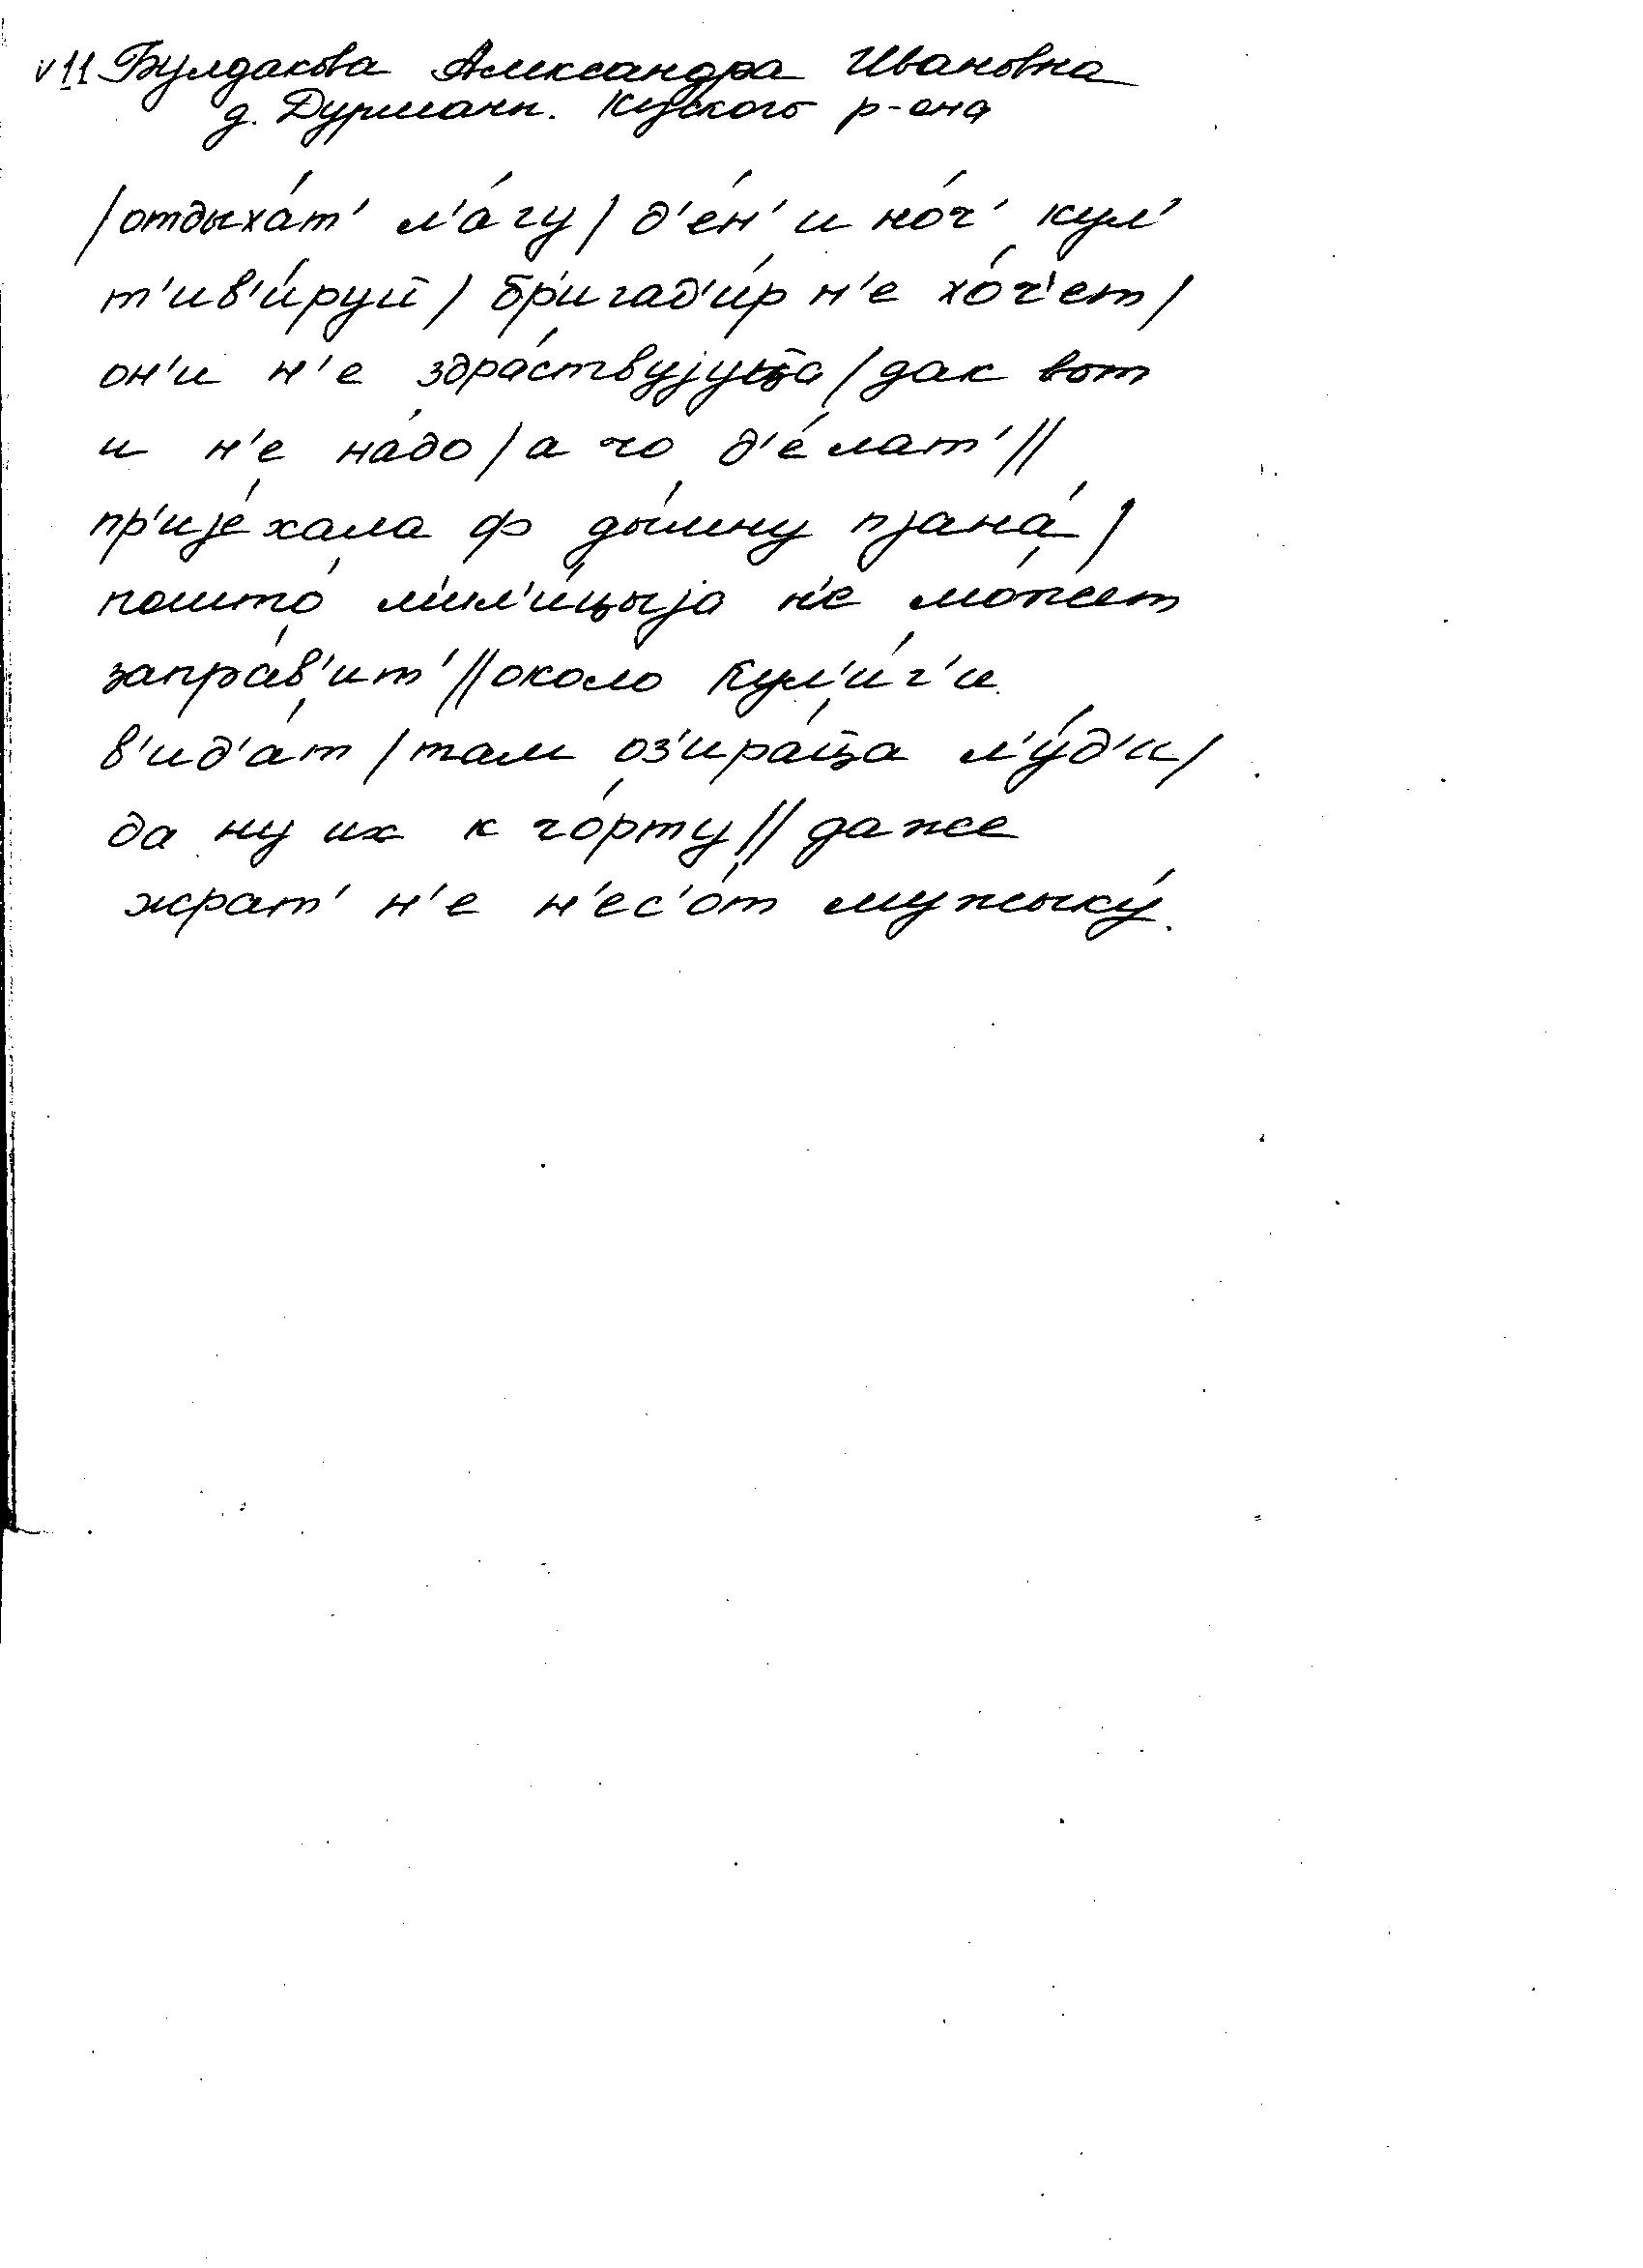 v 11 Булдакова Александра Ивановна
д. Дурманы. Куского р-она
/отдыха́т' л'а́гу/ д'е́н' и но́ч' кул'
т'ив'и́руй/ бр'игад'и́р н'е хо́ч'ет/
он'и н'е здра́ствуjуц̄а/дак вот
и н'е на́до/а чо д'е́лат'//
пр'иjе́хала ф ды́мину пjана́/
пошто́ м'ил'и́цыjа н'е мо́жет
запра́в'ит'//около Кул'и́г'и
в'ид'а́т/там оз'ира́ц̄а л'у́д'и/
да ну их к чо́рту// даже
жрат' н'е н'ес'о́т мужыку́.